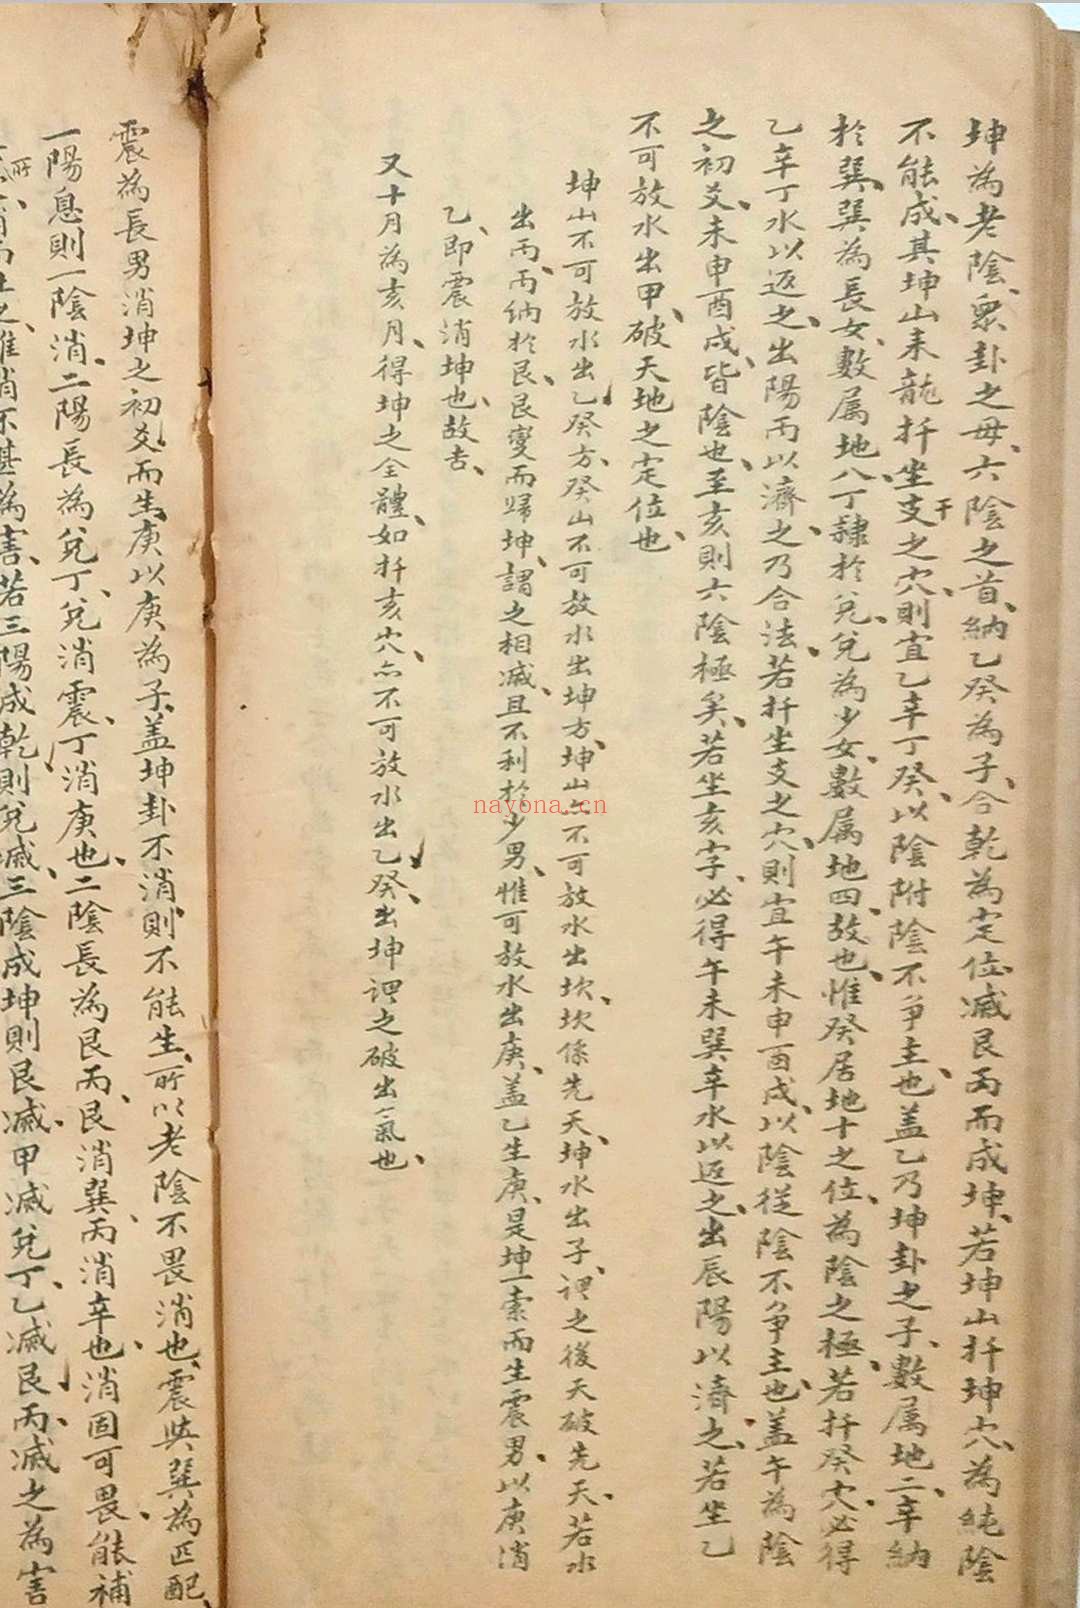 坤為老陰、眾卦之母、六陰之首、納乙癸為子、合乾為定位、滅艮丙而成坤、若坤山扦坤穴、為純陰
不能成、其坤山來龍扦坐支干之穴、則宜乙辛丁癸、以陰附陰不爭主也、蓋乙乃坤卦之子、數属地二、辛納
於巽、巽為長女、數属地八、丁隸於兌、兌為少女、數属地四、故也、惟癸居地十之位、為陰之極、若扦癸穴、必得
乙辛丁水以返之、出陽丙以濟之、乃合法、若扦坐支之穴、則宜午未申酉戌、以陰從陰不爭主也、蓋午為陰
之初爻、未申酉戌、皆陰也、至亥則六陰極矣、若坐亥字、必得午未巽辛水以返之、出辰陽以濟之、若坐乙
不可放水出甲、破天地之定位也、
坤山不可放水出乙癸方、癸山不可放水出坤方、坤山亦不可放水出坎、坎係先天、坤水出子、謂之後天破先天、若水
出丙、丙納於艮、艮變而歸坤、謂之相滅、且不利於少男、惟可放水出庚、蓋乙生庚、是坤一索而生震男、以庚消
乙、即震消坤也、故吉、
又十月為亥月、得坤之全體、如扦亥穴、亦不可放水出乙癸、出坤謂之破出氣也、
震為長男消坤之初爻、而生庚以庚為子、蓋坤卦不消、則不能生、所以老陰不畏消也、震與巽為匹配、
一陽息則一陰消、二陽長為兌丁、兌消震、丁消庚也、二陰長為艮丙、艮消巽、丙消辛也、消固可畏、能補
若三陽成乾、則兌滅、三陰成坤則艮滅、甲滅兌丁、乙滅艮丙、滅之為害
nayona.cn